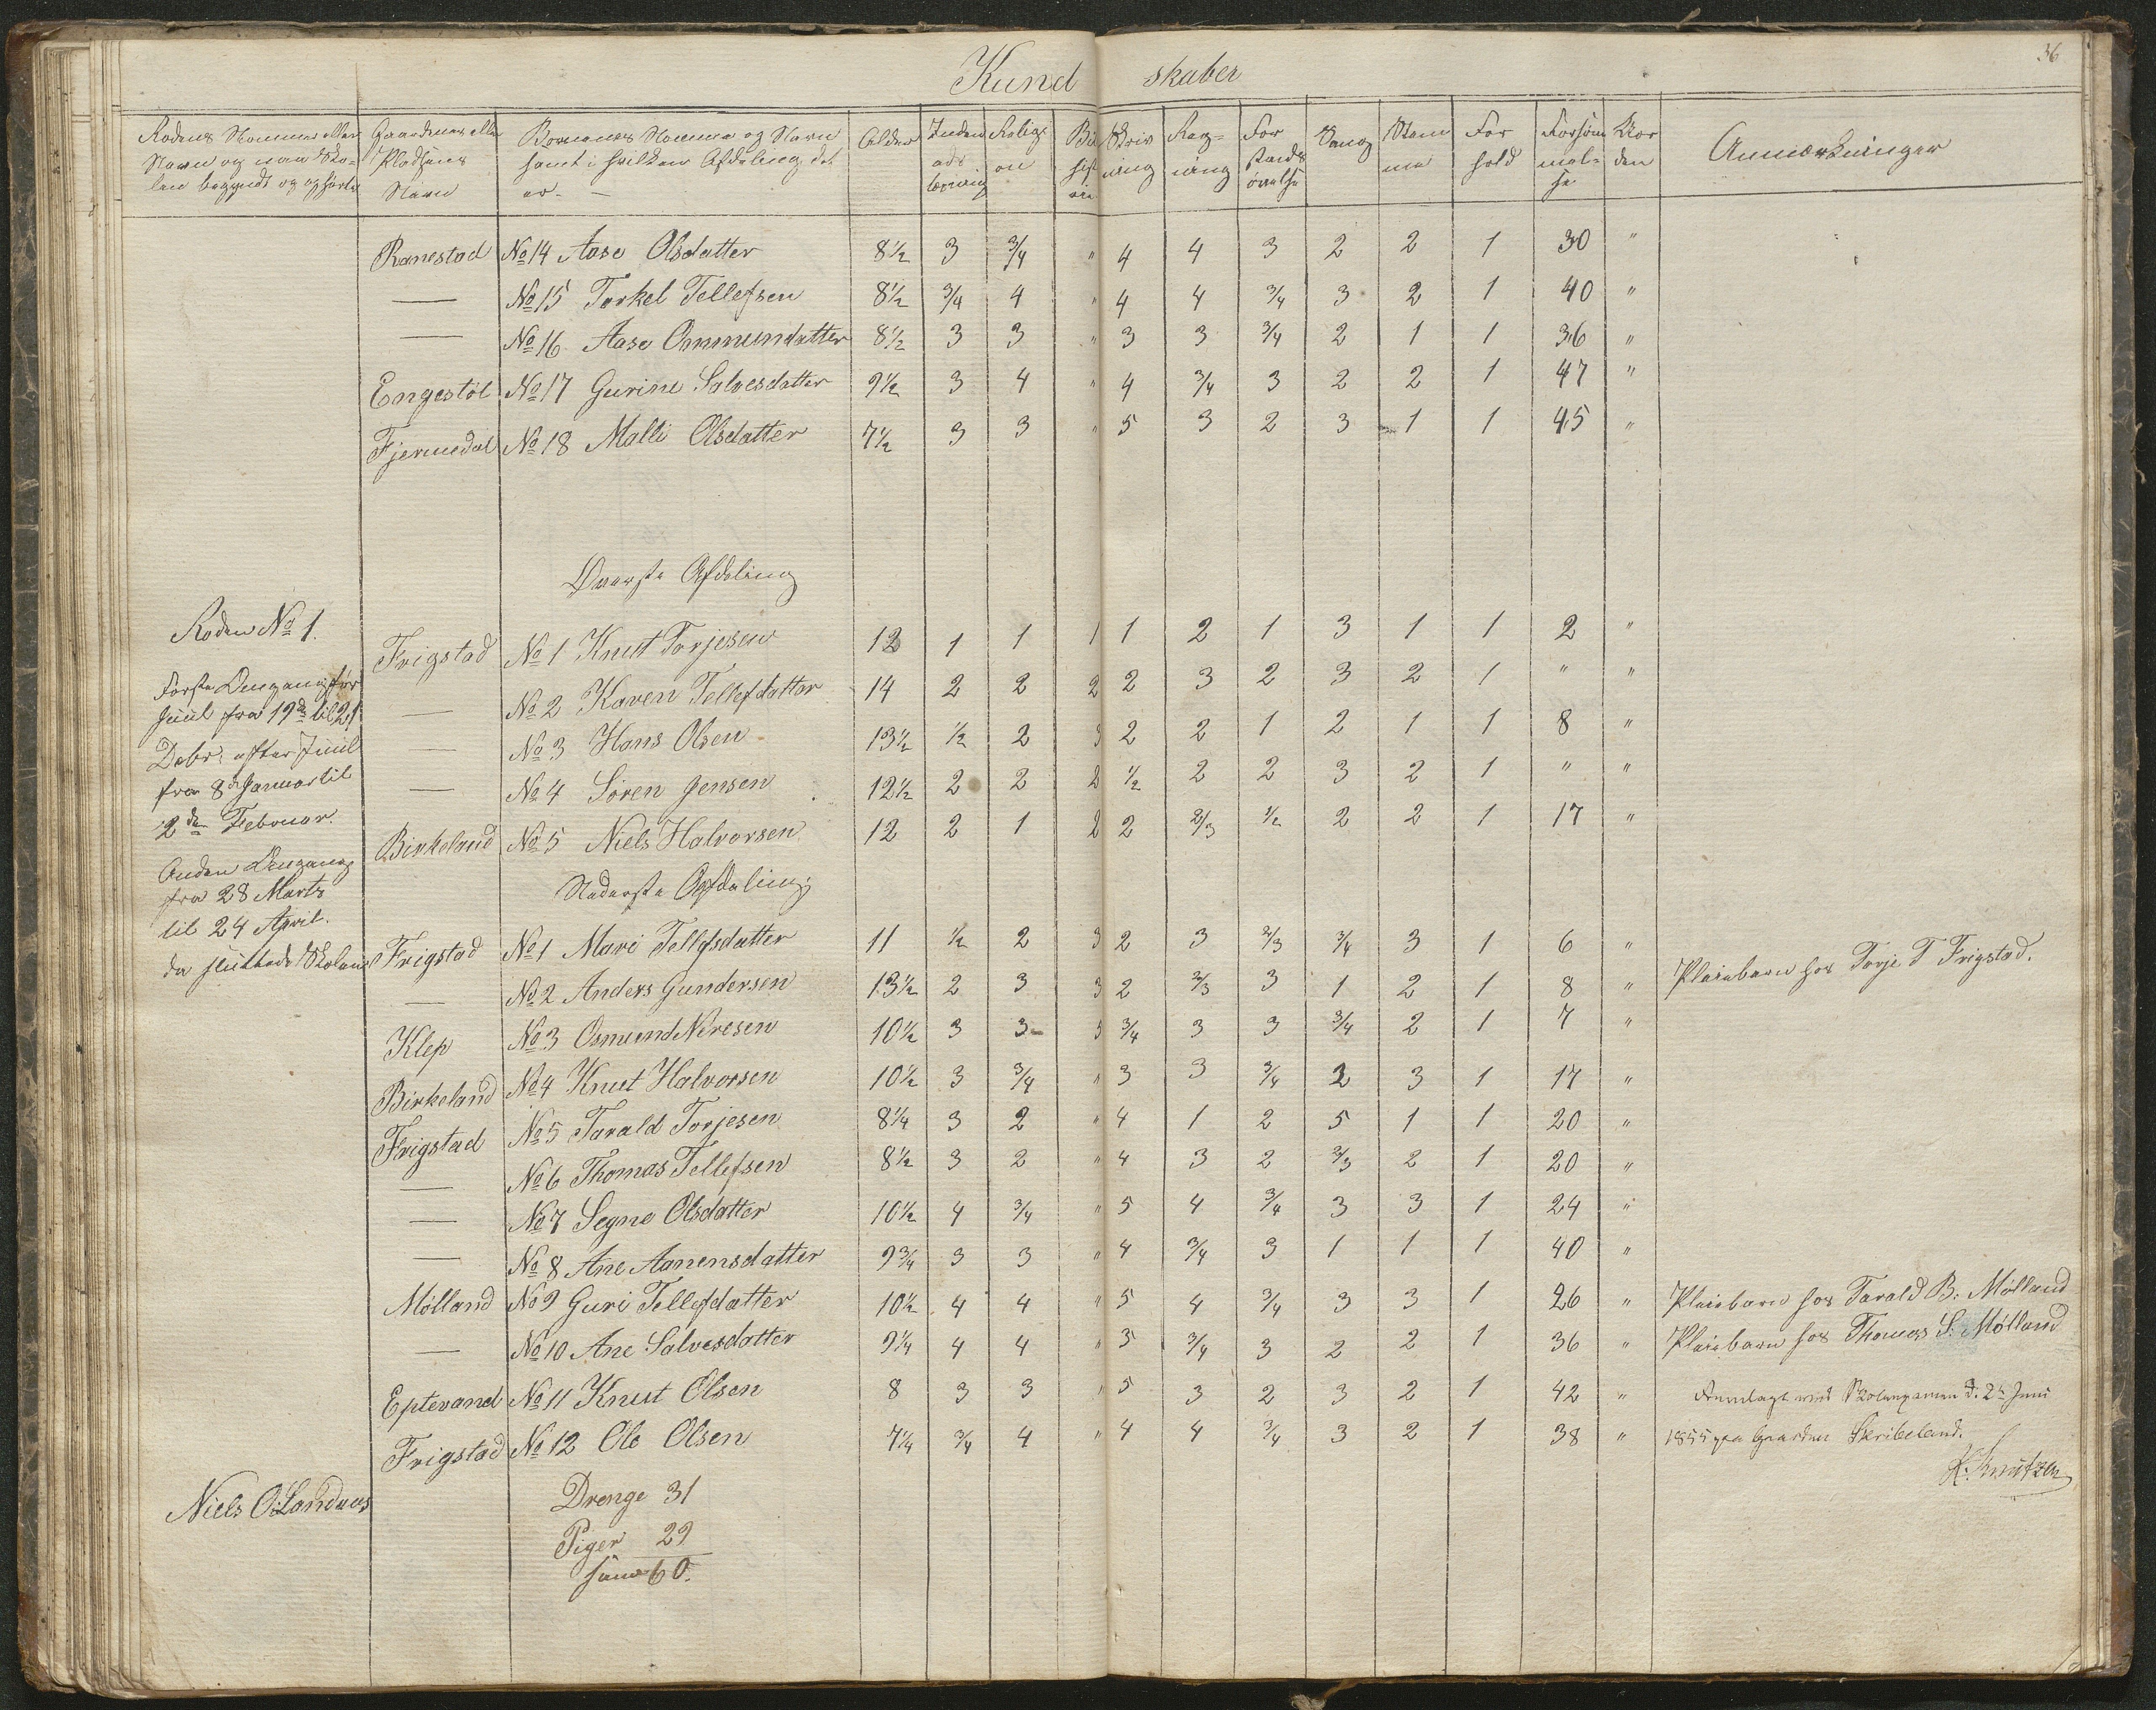 36
Kundskaber
Rodens Nummer eller Navn og naar Skolen begyndt og ophörte
Gaardenes eller Pladsens Navn
Börnenes Nummer og Navn samt i hvilken Afdeling det er. —
Alder
Indenadslæsning
Religion
Bi Histori
Skrivning
Regning
Forstandsövelse
Sang
Nemme
Forhold
Forsömmelse
Anmærkninger
Ranestad No 14 Aase Olsdatter 8½ 3 ¾ " 4 4 3 2 2 1 30 "
— No 15 Torkel Tellefsen 8½ ¾ 4 " 4 4 ¾ 3 2 1 40 "
— No 16 Aase Ommundatter 8½ 3 3 " 3 3 ¾ 2 1 1 36 "
Engestöl No 17 Gurine Salvesdatter 9½ 3 4 " 4 ¾ 3 2 2 1 47 "
Fjermedal No 18 Malli Olsdatter 7½ 3 3 " 5 3 2 3 1 1 45 "
Överste Afdeling
Roden No 1.
Frigstad No 1 Knut Torjesen 12 1 1 1 1 2 1 3 1 1 2 "
Förste Omgang för
— No 2 Karen Tellefdatter 14 2 2 2 2 3 2 3 2 1 " "
Juul fra 19de til 21
— No 3 Hans Olsen 13½ ½ 2 3 2 2 1 2 1 1 8 "
Decbr: efter Juul
— No 4 Sören Jensen 12½ 2 2 2 ½ 2 2 3 2 1 " "
fra 8de Januar til
2den Februar.
Birkeland No 5 Niels Halvorsen 12 2 1 2 2 2/3 ½ 2 2 1 17 "
Anden Omgang
fra 28 Marts
Nederste Afdeling
til 24 April.
da sluttede Skolen
Frigstad No 1 Mari Tellefsdatter 11 ½ 2 3 2 3 2/3 ¾ 3 1 6 "
— No 2 Anders Gundersen 13½ 2 3 3 2 2/3 3 1 2 1 8 " Pleiebarn hos Torje T Frigstad.
Klep No 3 Osmund Neresen 10½ 3 3 3 ¾ 3 3 ¾ 2 1 7 "
Birkeland No 4 Knut Halvorsen 10½ 3 ¾ " 3 3 ¾ 2 3 1 17 "
Frigstad No 5 Tarald Torjesen 8¼ 3 2 " 4 1 2 5 1 1 20 "
— No 6 Thomas Tellefsen 8½ 3 2 " 4 3 2 2/3 2 1 20 "
— No 7 Segne Olsdatter 10½ 4 ¾ " 5 4 ¾ 3 3 1 24 "
— No 8 Ane Aanensdatter 9¾ 3 3 " 4 ¾ 3 1 1 1 40 "
Mölland No 9 Guri Tellefdatter 10½ 4 4 " 5 4 ¾ 3 3 1 26 " Pleiebarn hos Tarald B: Mölland
— No 10 Ane Salvesdatter 9¼ 4 4 " 5 ¾ 3 2 2 1 36 " Pleiebarn hos Thomas S. Mölland
Eptevand No 11 Knut Olsen 8 3 3 " 5 3 2 3 2 1 42 "
Fremlagt ved Skoleexamen d: 2den Juni
Frigstad No 12 Ole Olsen 7¼ ¾ 4 " 4 4 ¾ 3 2 1 38 "
1855 paa Gaarden Skribeland.
K: Knutzen
Niels O: Landaas
Drenge 31
Piger 29
Sum 60.